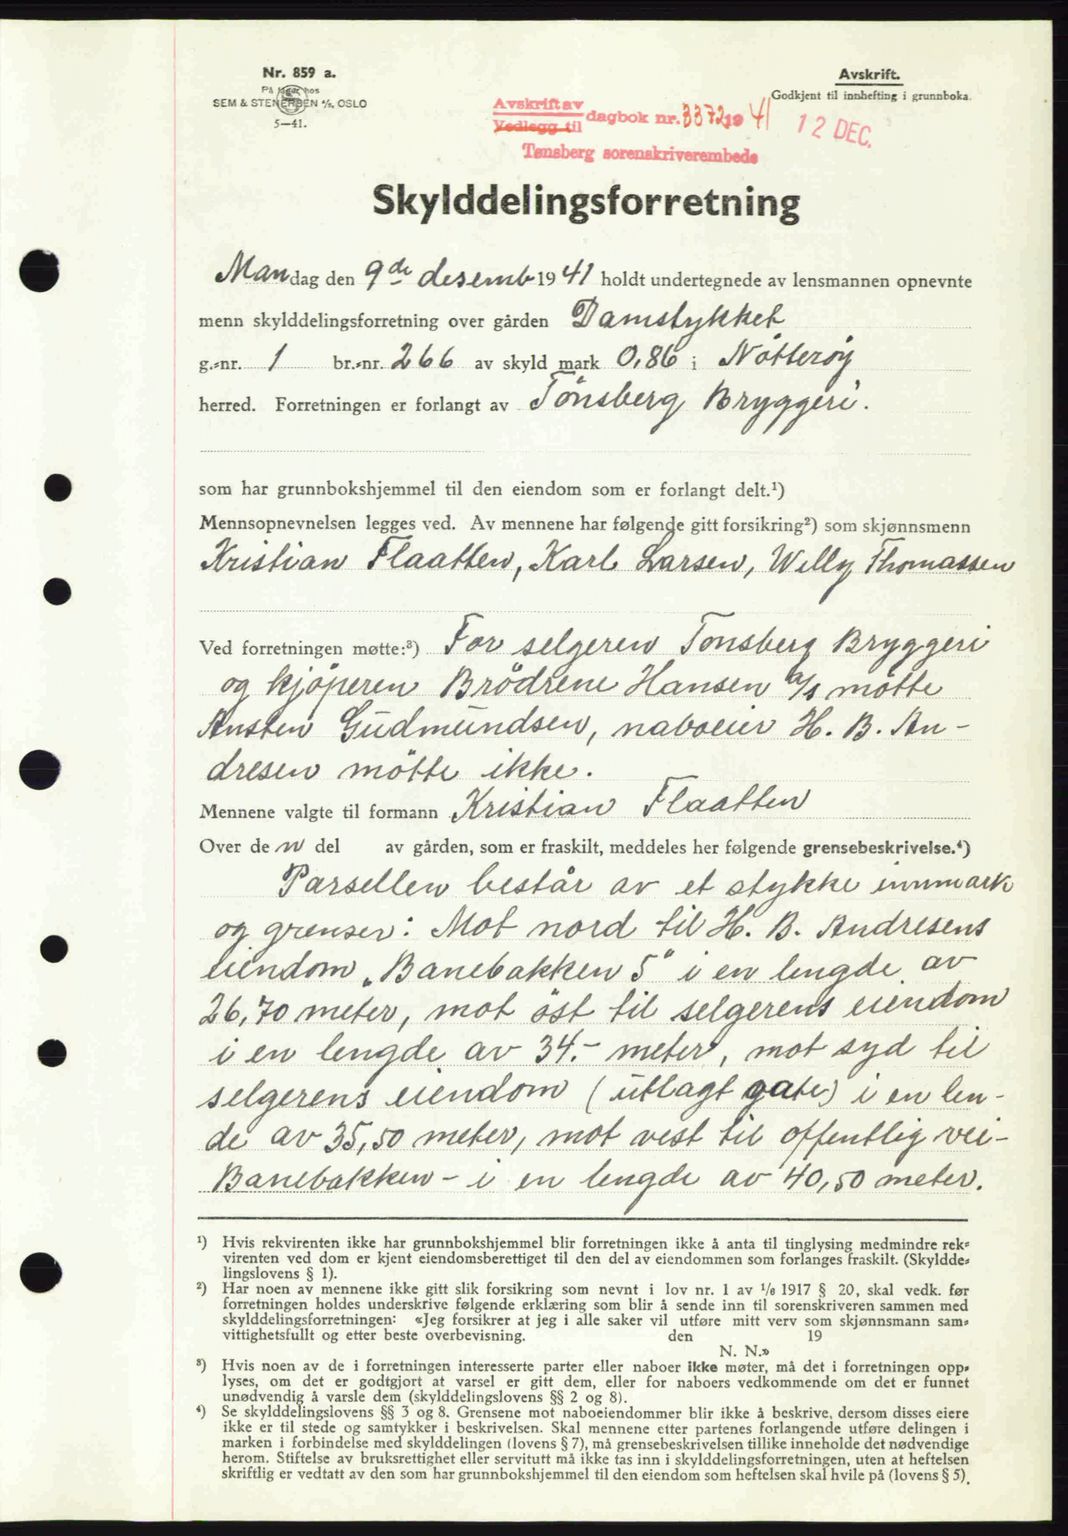 Nr. 859 a.
På lager hos
SEM & STENERSEN A/S, OSLO
5—41.
Avskrift.
Godkjent til innhefting i grunnboka.
Avskrift av
Vedlegg til dagbok nr. 3372 19 41
12 DEC.
Tønsberg sorenskriverembede
Skylddelingsforretning
Mandag den 9de desemb 1941 holdt undertegnede av lensmannen opnevnte
menn skylddelingsforretning over gården Damstykket
g.-nr. 1 br.-nr. 266 av skyld mark 0,86 i Nötteröy
herred. Forretningen er forlangt av Tönsberg Bryggeri.
som har grunnbokshjemmel til den eiendom som er forlangt delt.¹)
Mennsopnevnelsen legges ved. Av mennene har følgende gitt forsikring²) som skjønnsmenn
Kristian Flaatten, Karl Larsen, Willy Thomassen
Ved forretningen møtte:³) For selgeren Tonsberg Bryggeri
og kjöperen Brödrene Hansen A/S mötte
Ansten Gudmundsen, naboeier H. B. An-
dresen mötte ikke.
Mennene valgte til formann Kristian Flaatten
Over den del av gården, som er fraskilt, meddeles her følgende grensebeskrivelse.⁴)
Parsellen består av et stykke innmark
og grenser: Mot nord til H. B. Andresens
eiendom „Banebakken 5" i en lengde av
26,70 meter, mot öst til selgerens eiendom
i en lengde av 34.- meter, mot syd til
selgerens eiendom (utlagt gate) i en len-
de av 35,50 meter, mot vest til offentlig vei-
Banebakken - i en lengde av 40,50 meter.
¹) Hvis rekvirenten ikke har grunnbokshjemmel blir forretningen ikke å anta til tinglysing medmindre rek-
virenten ved dom er kjent eiendomsberettiget til den del av eiendommen som forlanges fraskilt. (Skyldde-
lingslovens § 1).
²) Har noen av mennene ikke gitt slik forsikring som nevnt i lov nr. 1 av 1/6 1917 § 20, skal vedk. før
forretningen holdes underskrive følgende erklæring som blir å sende inn til sorenskriveren sammen med
skylddelingsforretningen: «Jeg forsikrer at jeg i alle saker vil utføre mitt verv som skjønnsmann sam-
vittighetsfullt og etter beste overbevisning. den 19
N. N.»
³) Hvis noen av de i forretningen interesserte parter eller naboer ikke møter, må det i forretningen opp-
lyses, om det er godtgjort at varsel er gitt dem, eller for naboers vedkommende om det er funnet
unødvendig å varsle dem (skylddelingslovens §§ 2 og 8).
⁴) Se skylddelingslovens §§ 3 og 8. Grensene mot naboeiendommer blir ikke å beskrive, dersom disses eiere
ikke er til stede og samtykker i beskrivelsen. Skal mennene etter partenes forlangende utføre delingen i
marken i forbindelse med skylddelingen (lovens § 7), må grensebeskrivelsen tillike inneholde det nødvendige
herom. Stiftelse av bruksrettighet eller servitutt må ikke tas inn i skylddelingsforretningen, uten at heftelsen
skriftlig er vedtatt av den som har grunnbokshjemmel til den eiendom som heftelsen skal hvile på (lovens § 5).